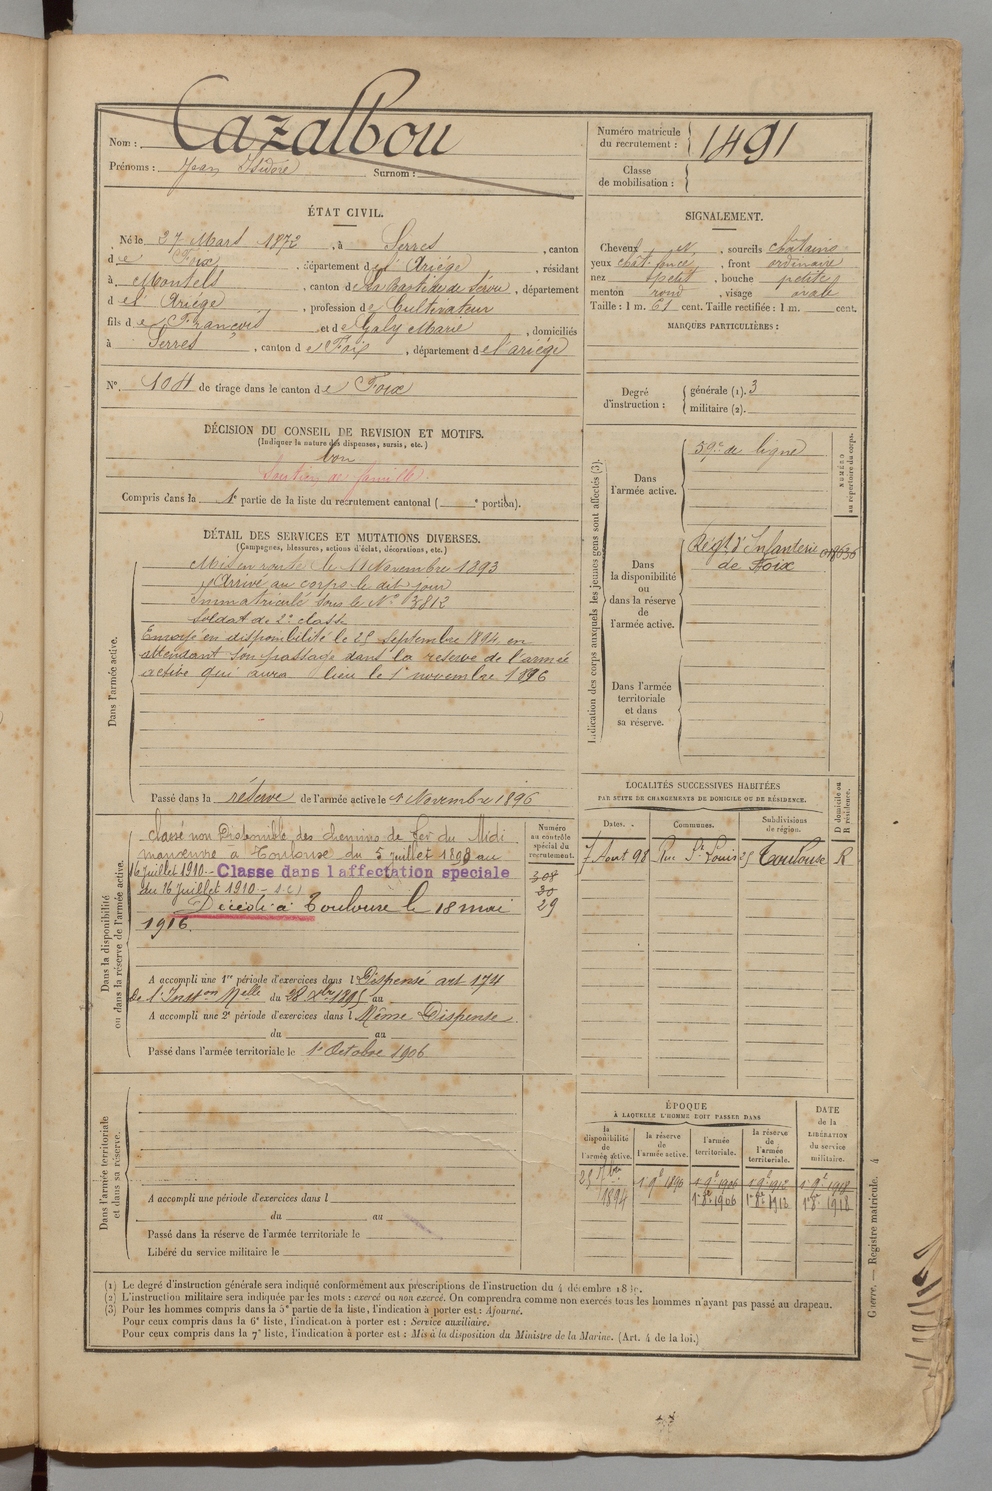 Nom : Cazalbou
Prénoms : Jean Isidore Surnom :
Numéro matricule du recrutement : 1491
Classe de mobilisation :
ÉTAT CIVIL.
Né le 27 Mars 1872, à Serres, canton
de Foix, département de l'Ariége, résidant
à Montels, canton de La Bastide de Sérou, département
de l'Ariége, profession de Cultivateur
fils de François et de Galy Marie, domiciliés
à Serres, canton de Foix, département de l'ariége
N° 104 de tirage dans le canton de Foix
SIGNALEMENT.
Cheveux N, sourcils châtains
yeux chât. foncé, front ordinaire
nez petit, bouche petite
menton rond, visage ovale
Taille : 1 m. 61 cent. Taille rectifiée : 1 m. cent.
MARQUES PARTICULIÈRES :
Degré d'instruction : générale (1). 3
militaire (2).
DÉCISION DU CONSEIL DE REVISION ET MOTIFS.
(Indiquer la nature des dispenses, sursis, etc.)
bon
Soutien de famille
Compris dans la 1e partie de la liste du recrutement cantonal ( e portion).
DÉTAIL DES SERVICES ET MUTATIONS DIVERSES.
(Campagnes, blessures, actions d'éclat, décorations, etc.)
Dans l'armée active.
Mis en route le 11 Novembre 1893
Arrivé au corps le dit jour
Immatriculé sous le N° 3812
Soldat de 2e classe
Envoyé en disponibilité le 25 septembre 1894 en
attendant son passage dans la reserve de l'armée
active qui aura lieu le 1er novembre 1896
Passé dans la réserve de l'armée active le 1er Novembre 1896
Indication des corps auxquels les jeunes gens sont affectés (3).
NUMÉRO au répertoire du corps.
Dans l'armée active.
59e de ligne
Dans la disponibilité ou dans la réserve de l'armée active.
Régt d'Infanterie
de Foix
Dans l'armée territoriale et dans sa réserve.
LOCALITÉS SUCCESSIVES HABITÉES
PAR SUITE DE CHANGEMENTS DE DOMICILE OU DE RÉSIDENCE.
Dates. Communes. Subdivisions de région. D domicile ou R résidence.
7 Aout 98 Rue St Louis 25 Toulouse R
Dans la disponibilité ou dans la réserve de l'armée active.
Numéro au contrôle spécial du recrutement.
Classé non Disponible des chemins de fer du Midi
manœuvre à Toulouse du 5 juillet 1898 au
16 juillet 1910.- Classe dans l affectation speciale
du 16 Juillet 1910 -
308
30
29
Décédé à Toulouse le 18 mai
1916.
A accompli une 1re période d'exercices dans l Dispensé art 174
de l'Inston Melle du 28 Xbre 1895 au
A accompli une 2e période d'exercices dans l Même Dispense
du au
Passé dans l'armée territoriale le 1er Octobre 1906
Dans l'armée territoriale et dans sa réserve.
A accompli une période d'exercices dans l
du au
Passé dans la réserve de l'armée territoriale le
Libéré du service militaire le
ÉPOQUE
À LAQUELLE L'HOMME DOIT PASSER DANS
DATE de la LIBÉRATION du service militaire.
la disponibilité de l'armée active. la réserve de l'armée active. l'armée territoriale. la réserve de l'armée territoriale.
25 7bre 1894 1 9e 1896 1 9e 1906 1 9e 1912 1 9e 1918
1 8e 1906 1 8e 1912 1 8e 1918
(1) Le degré d'instruction générale sera indiqué conformément aux prescriptions de l'instruction du 4 décembre
(2) L'instruction militaire sera indiquée par les mots : exercé ou non exercé. On comprendra comme non exercés tous les hommes n'ayant pas passé au drapeau.
(3) Pour les hommes compris dans la 5e partie de la liste, l'indication à porter est : Ajourné.
Pour ceux compris dans la 6e liste, l'indication à porter est : Service auxiliaire.
Pour ceux compris dans la 7e liste, l'indication à porter est : Mis à la disposition du Ministre de la Marine. (Art. 4 de la loi.)
Guerre. — Registre matricule. 4